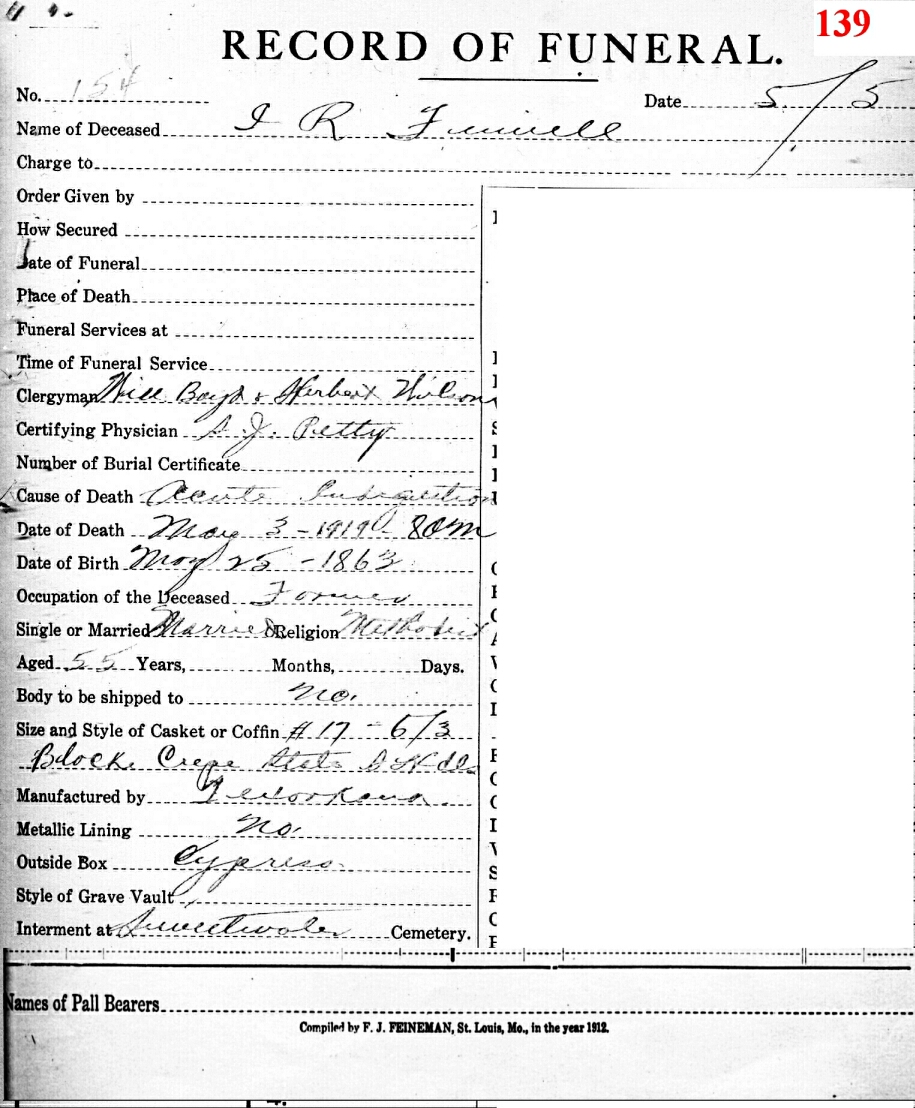 139
RECORD OF FUNERAL.
No. 154
Date 5/5
Name of Deceased I R Funnell
Charge to
Order Given by
How Secured
Date of Funeral
Place of Death
Funeral Services at
Time of Funeral Service
Clergyman Will Boyd & Herbert Wilson
Certifying Physician S. J. Petty
Number of Burial Certificate
Cause of Death Acute Indigestion
Date of Death May 3 - 1919
Date of Birth May 25 - 1863
Occupation of the Deceased Farmer
Single or Married Married Religion Methodist
Aged 55 Years, Months, Days.
Body to be shipped to No.
Size and Style of Casket or Coffin # 17 - 6/3
Black Crepe State
Manufactured by Texarkana
Metallic Lining No.
Outside Box Cypress
Style of Grave Vault
Interment at Sweetwater Cemetery.
Names of Pall Bearers
Compiled by F. J. FEINEMAN, St. Louis, Mo., in the year 1912.